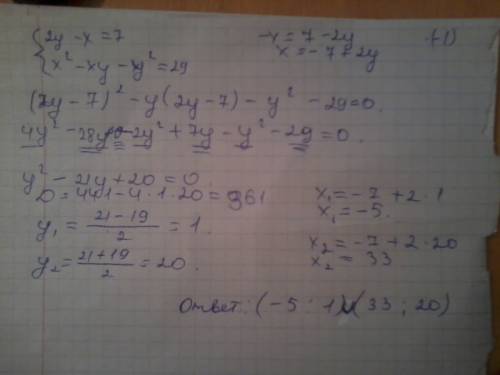 {2y - x = 7
{x² - xy - y² = 29
-x = 7 - 2y (-1)
x = -7 + 2y
(2y - 7)² - y(2y - 7) - y² - 29 = 0.
4y² - 28y - 2y² + 7y - y² - 29 = 0.
y² - 21y + 20 = 0.
D = 441 - 4·1·20 = 361
y₁ = (21 - 19)/2 = 1.
y₂ = (21 + 19)/2 = 20.
x₁ = -7 + 2·1
x₁ = -5.
x₂ = -7 + 2·20
x₂ = 33
Ответ: (-5 ; 1) и (33 ; 20)